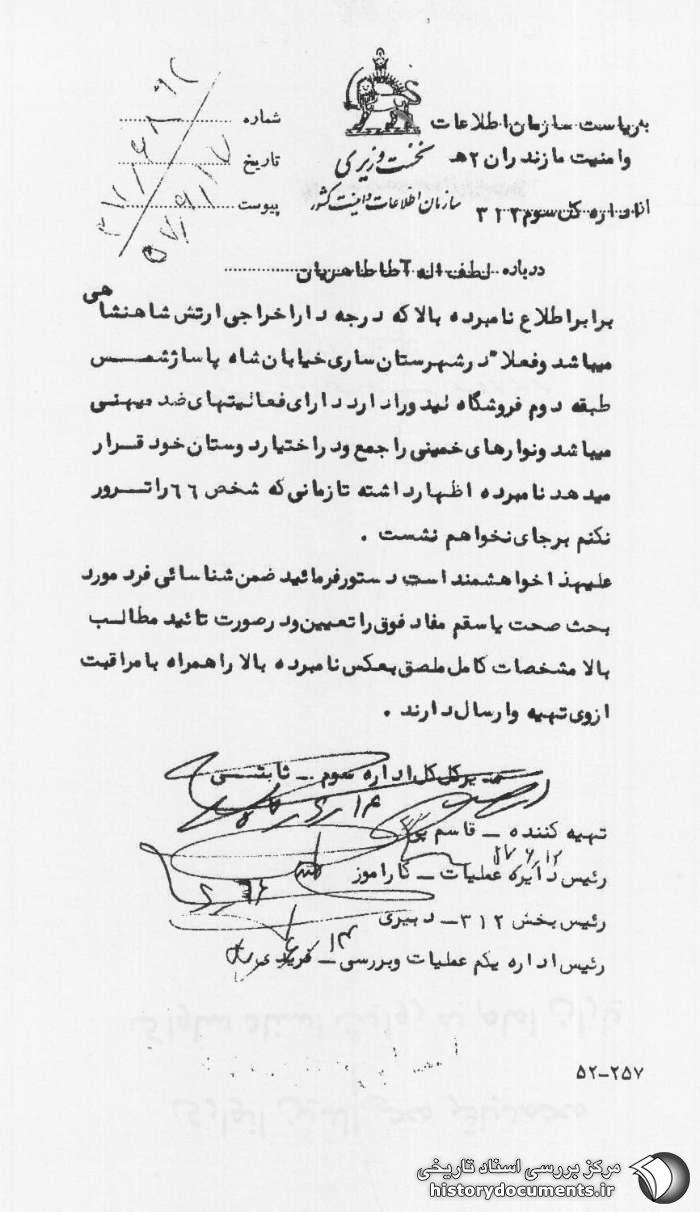 به ریاست سازمان اطلاعات
و امنیت مازندران ۲ هـ
از اداره کل سوم ۳۱۲
نخست وزیری
سازمان اطلاعات و امنیت کشور
شماره
تاریخ
پیوست
درباره لطف اله آطاطاهریان
برابر اطلاع نامبرده بالا که درجه دار اخراجی ارتش شاهنشاهی
میباشد و فعلا" در شهرستان ساری خیابان شاه پاساژ شمس
طبقه دوم فروشگاه لیدورا دارد دارای فعالیتهای ضد میهنی
میباشد و نوارهای خمینی را جمع و در اختیار دوستان خود قرار
میدهد نامبرده اظهار داشته تا زمانی که شخص ۶۶ را ترور
نکنم برجای نخواهم نشست .
علیهذا خواهشمند است دستور فرمائید ضمن شناسائی فرد مورد
بحث صحت یا سقم مفاد فوق را تعیین و در صورت تائید مطالب
بالا مشخصات کامل ملصق بعکس نامبرده بالا را همراه با مراقبت
از وی تهیه و ارسال دارند .
مدیر کل اداره سوم - ثابتی
تهیه کننده - قاسم پور
رئیس دایره عملیات - کارآموز
رئیس بخش ۳۱۲ - دبیری
رئیس اداره یکم عملیات و بررسی -
۵۲-۲۵۷
مرکز بررسی اسناد تاریخی
historydocuments.ir